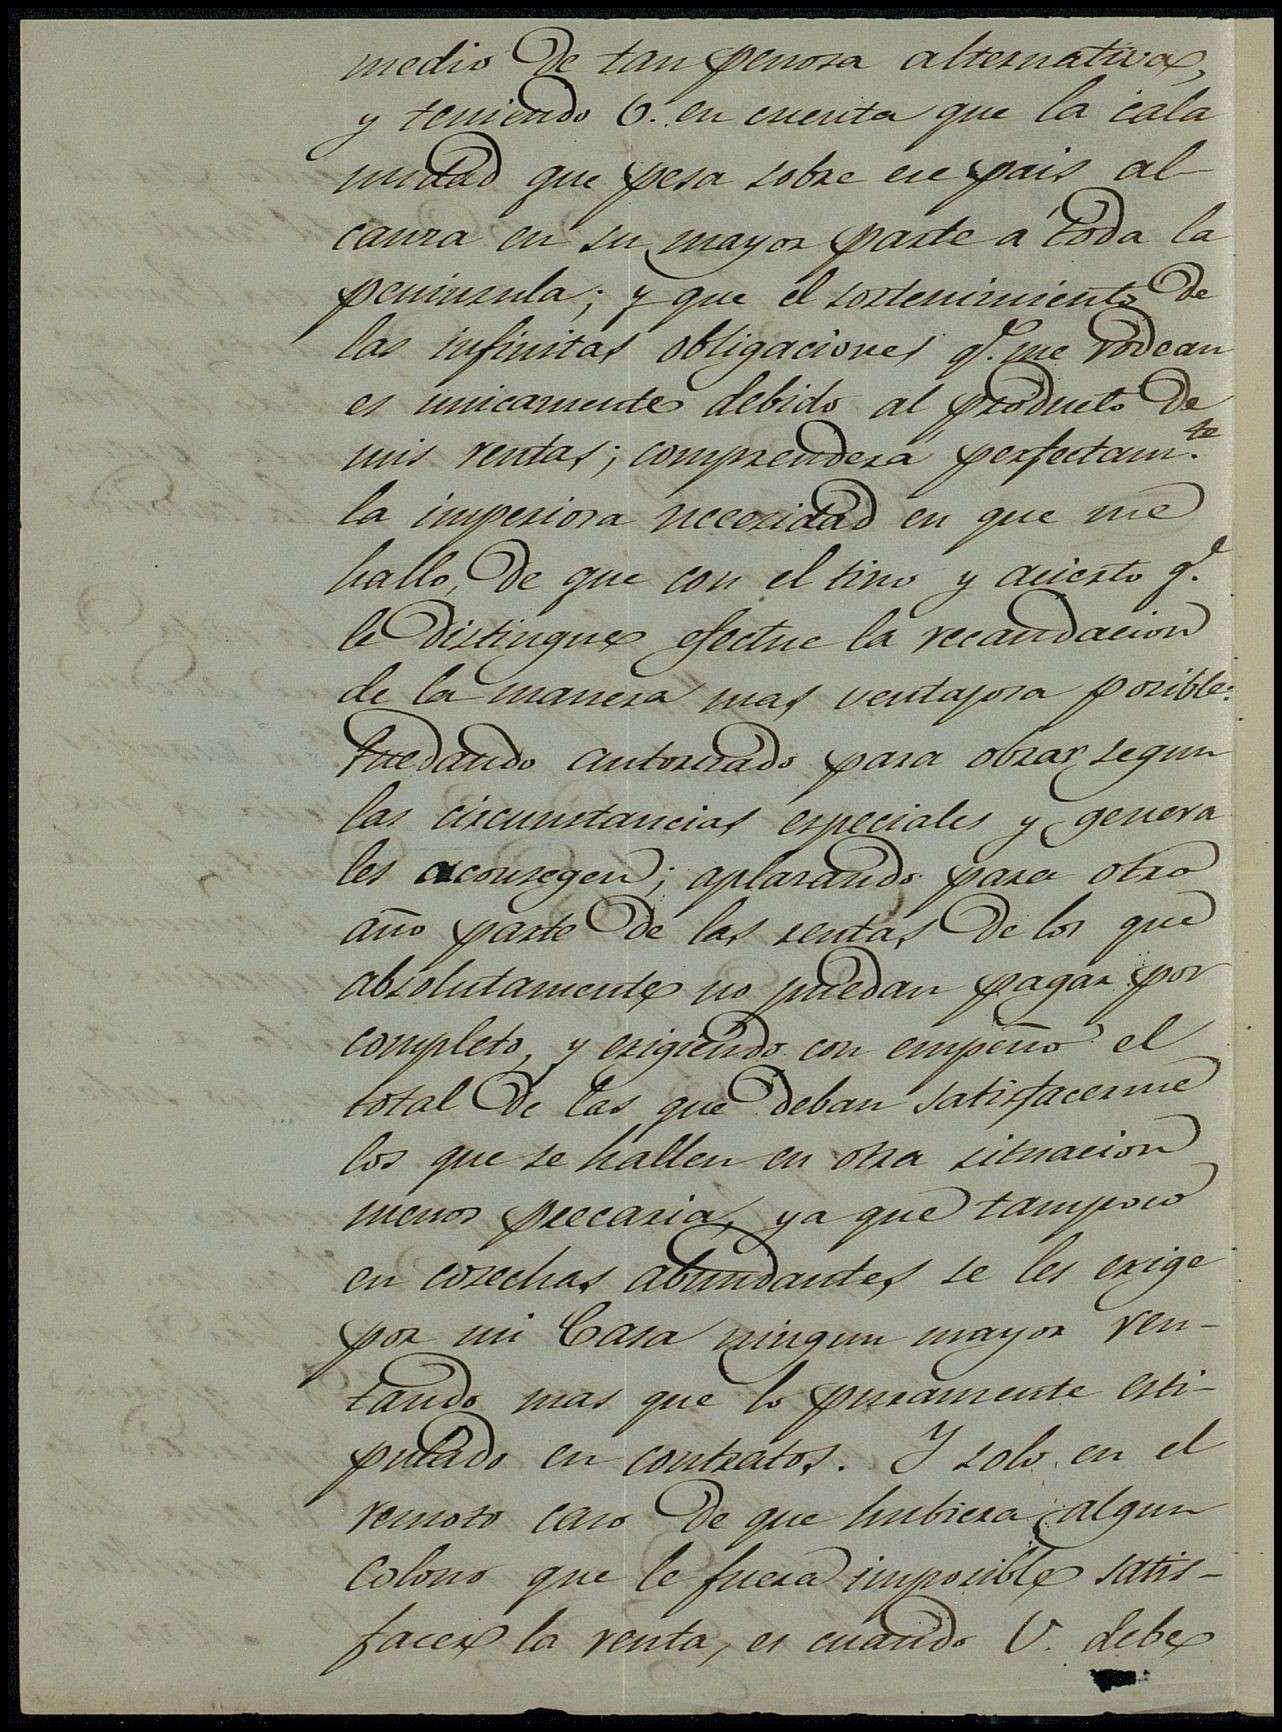 medio de tan penosa alternativa,
y teniendo V. en cuenta que la cala
midad que pesa sobre ese pais al-
canza en su mayor parte á toda la
peninsula; y que el sostenimiento de
las infinitas obligaciones q.e me rodean
es unicamente debido al producto de
mis rentas; comprenderá perfectam.te
la imperiosa necesidad en que me
hallo, de que con el tino y acierto q.e
le distingue efectue la recaudacion
de la manera mas ventajosa posible:
Quedando autorizado para obrar segun
las circunstancias especiales y genera
les aconsegen; aplazando para otro
año parte de las rentas de los que
absolutamente no puedan pagar por
completo, y exigiendo con empeño el
total de las que deban satisfacerme
los que se hallen en otra situacion
menos precaria, ya que tampoco
en cosechas abundantes se les exige
por mi Casa ningun mayor ren-
tando mas que lo puramente esti-
pulado en contratos. Y solo en el
remoto caso de que hubiera algun
colono que le fuera imposible satis-
facer la renta, es cuando V. debe